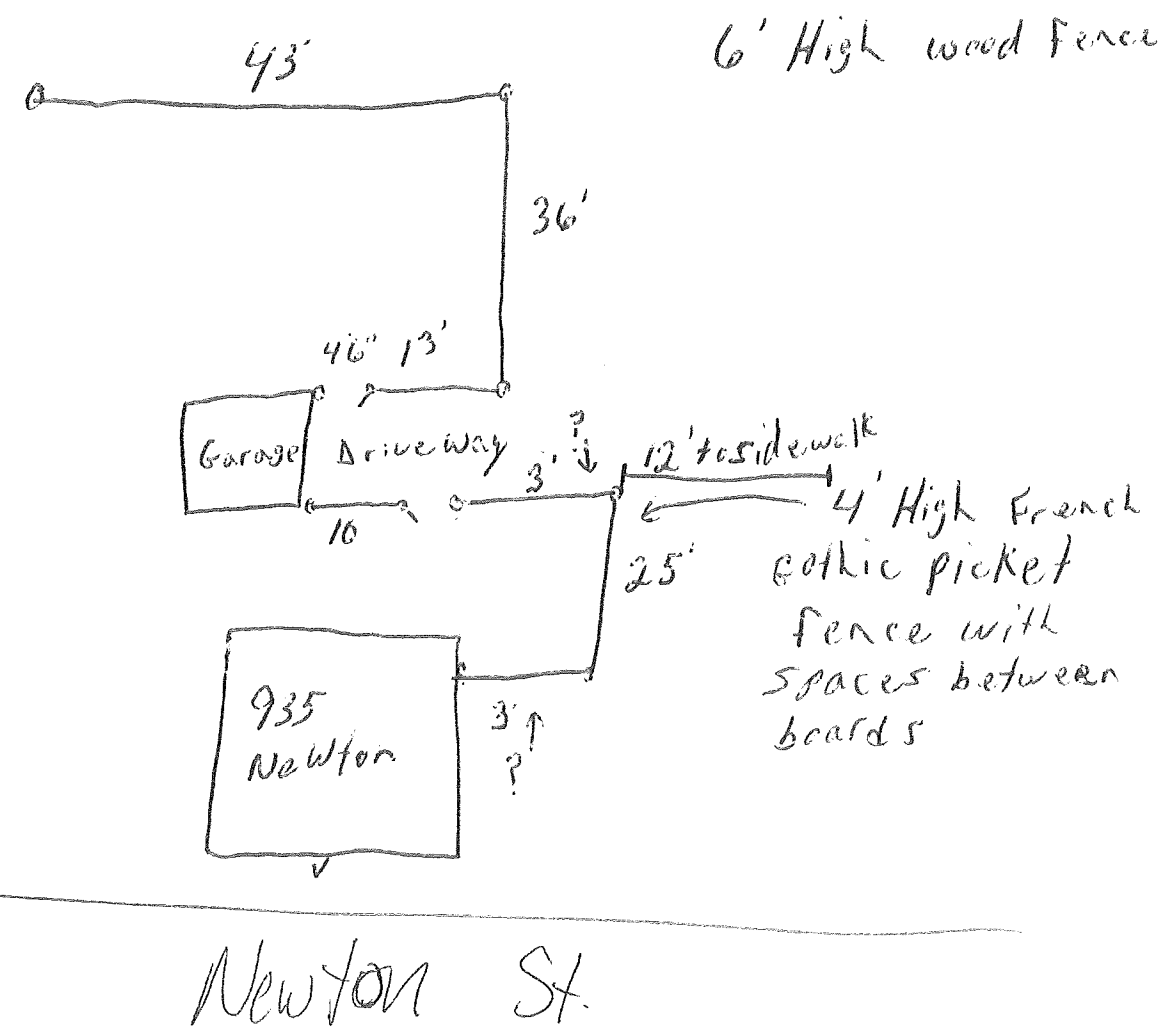 6' High wood Fence
43'
36'
46" 13'
Garage
Drive Way
?
3'
12' to sidewalk
10
25'
4' High French
Gothic picket
fence with
spaces between
boards
935
Newton
3'
?
Newton St.